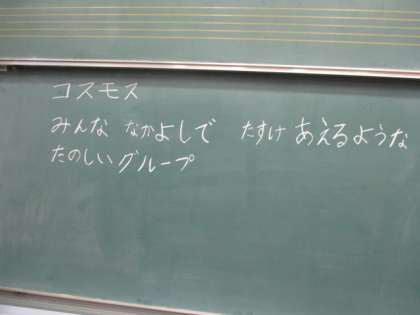 コスモス
みんな なかよしで たすけ あえるような
たのしいグループ